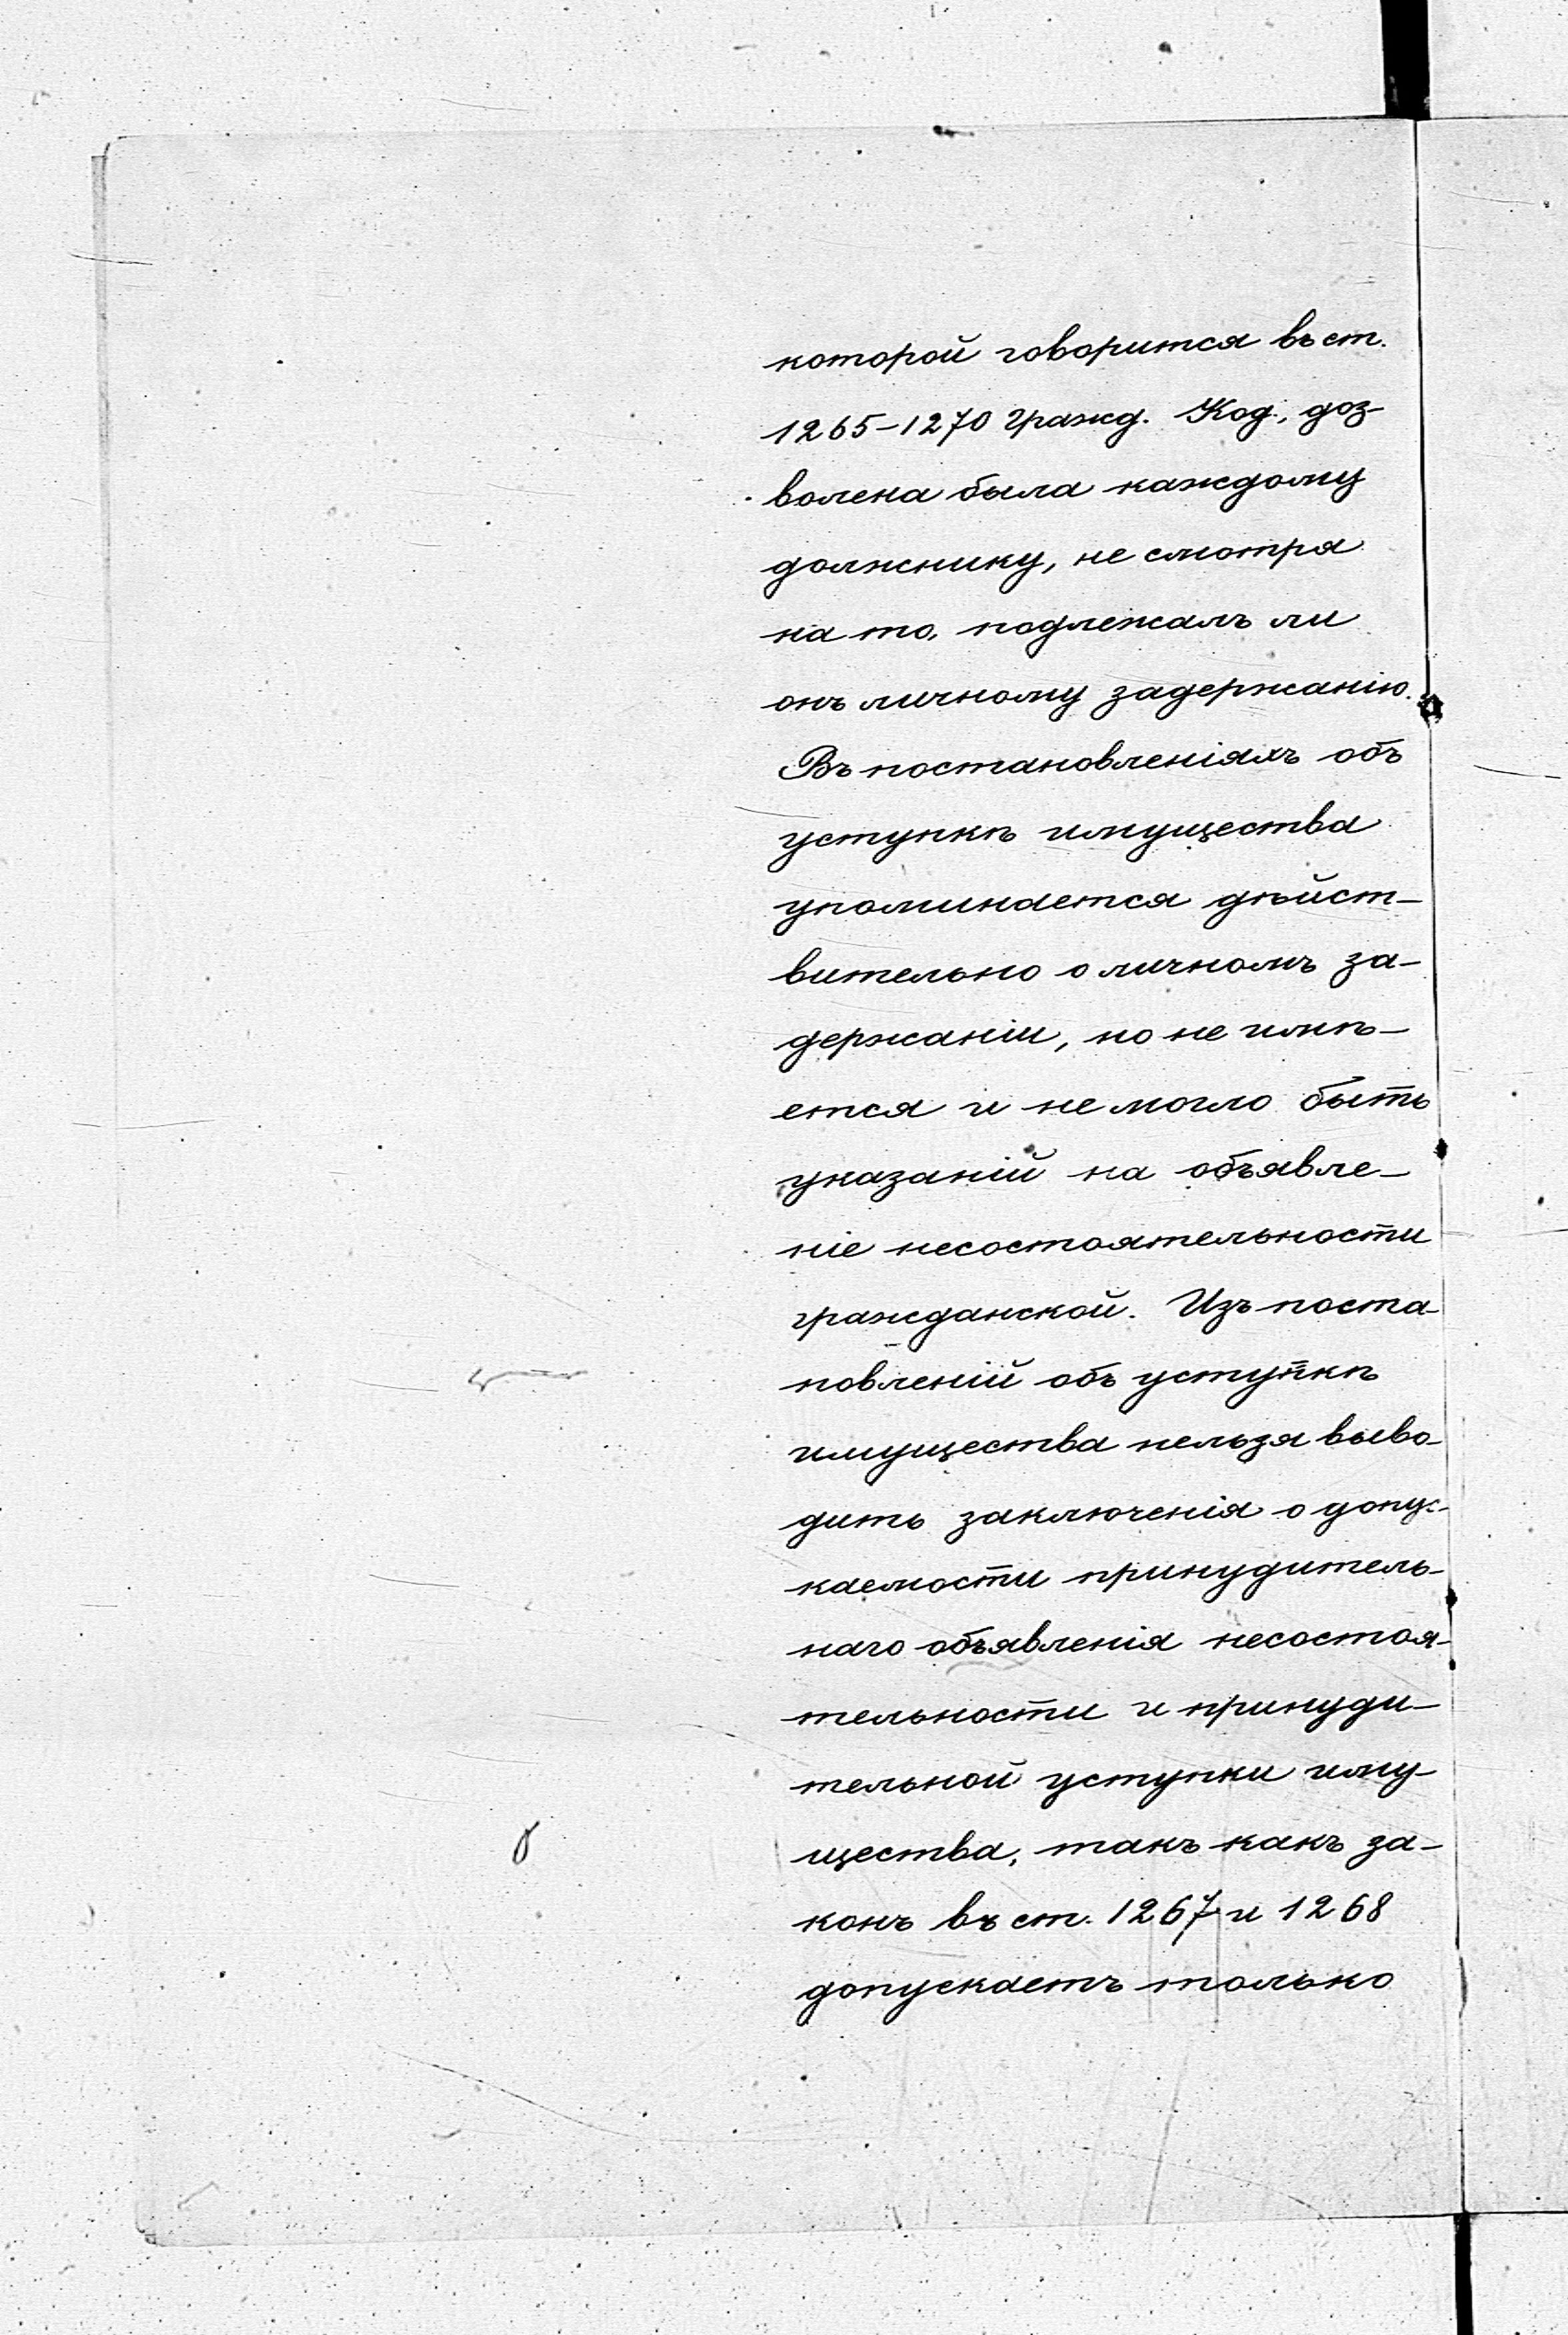 которой говорится въ ст.
1265-1270 Гражд. Код., доз-
волена была каждому
должнику, не смотря
на то, подлежалъ ли
онъ личному задержанію.
Въ постановленіяхъ объ
уступкѣ имущества
упоминается дѣйст-
вительно о личномъ за-
держаніи, но не имѣ-
ется и не могло быть
указаній на объявле-
ніе несостоятельности
гражданской. Изъ поста-
новленій объ уступкѣ
имущества нельзя выво-
дить заключенія о допус-
каемости принудитель-
наго объявленія несостоя-
тельности и принуди-
тельной уступки иму-
щества, такъ какъ за-
конъ въ ст. 1267 и 1268
допускаетъ только